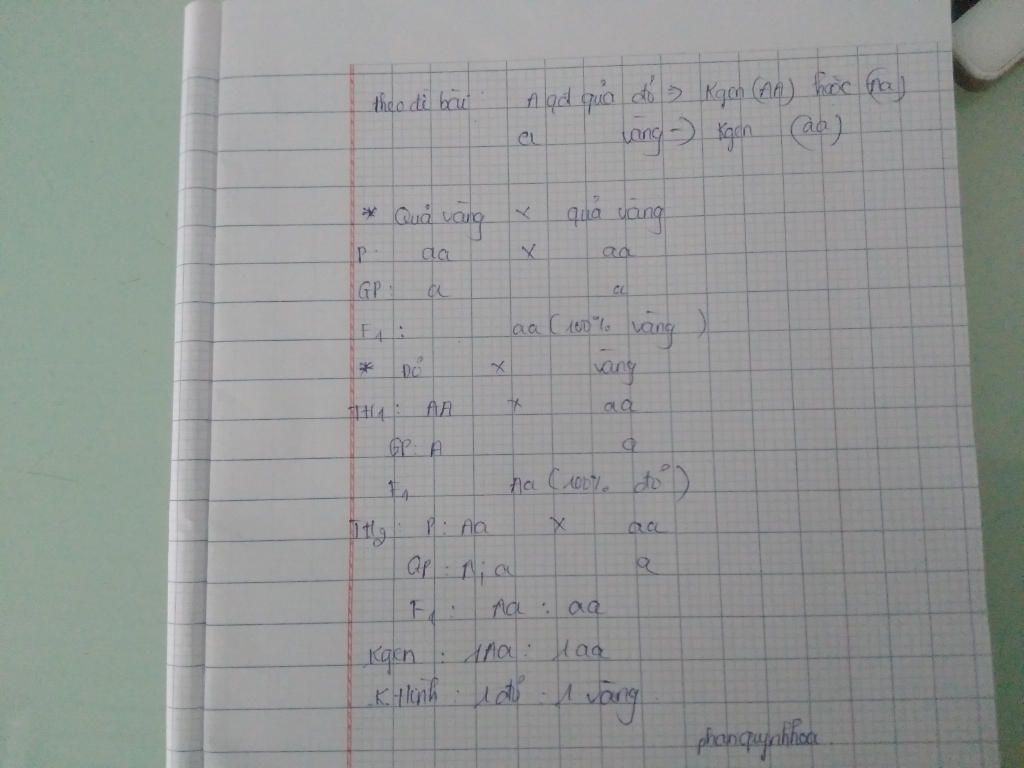 theo đề bài: A qđ quả đỏ => Kgen (AA) hoặc (Aa)
a vàng -> Kgen (aa)
* Quả vàng x quả vàng
P: aa x aa
GP: a a
F1: aa (100% vàng)
* Đỏ x vàng
TH1: AA x aa
GP: A a
F1 Aa (100% đỏ)
TH2: P: Aa x aa
GP: A; a a
F1: Aa : aa
Kgen : 1Aa : 1aa
K.Hình : 1 đỏ : 1 vàng
phanquynhhoa